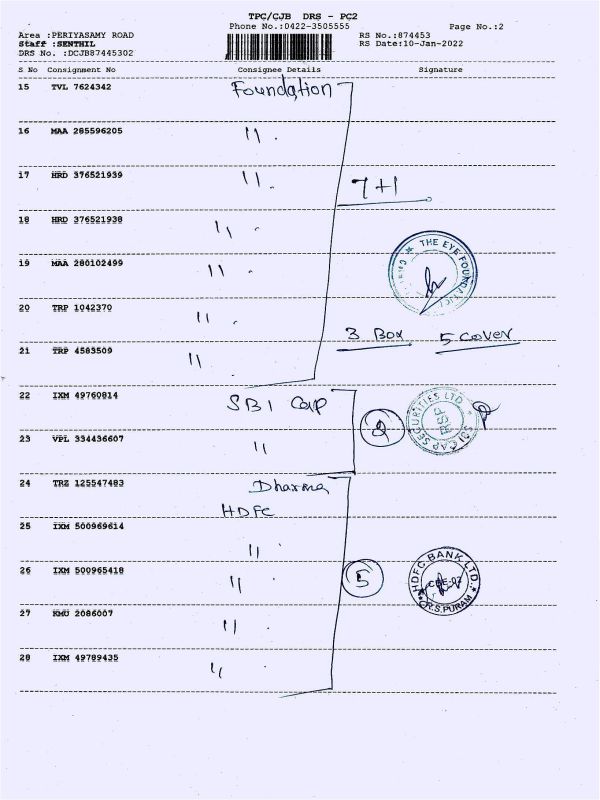 TPC/CJB DRS - PC2
Phone No.:0422-3505555 Page No.:2
Area :PERIYASAMY ROAD RS No.:874453
Staff :SENTHIL RS Date:10-Jan-2022
DRS No. :DCJB87445302
S No Consignment No Consignee Details Signature
15 TVL 7624342 Foundation
16 MAA 285596205 〃
17 HRD 376521939 〃 7+1
18 HRD 376521938 〃
19 MAA 280102499 〃
THE EYE FOUNDATION
20 TRP 1042370 〃
3 Box 5 Cover
21 TRP 4583509 〃
22 IXM 49760814 SBI Cap
2
SBI CAP SECURITIES LTD
RSP
23 VPL 334436607 〃
24 TRZ 125547483 Dharma
HDFC
25 IXM 500969614 〃
26 IXM 500965418 〃 5
HDFC BANK LTD.
CBE-02
R.S.PURAM
27 KMU 2086007 〃
28 IXM 49789435 〃